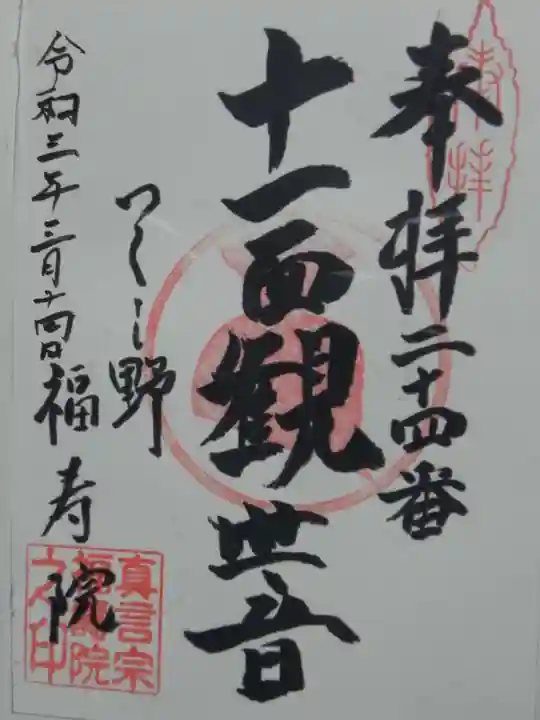 奉拝二十四番
奉拝
十一面観世音
つくし野
福寿院
令和三年三月十四日
真言宗
福寿院
之印